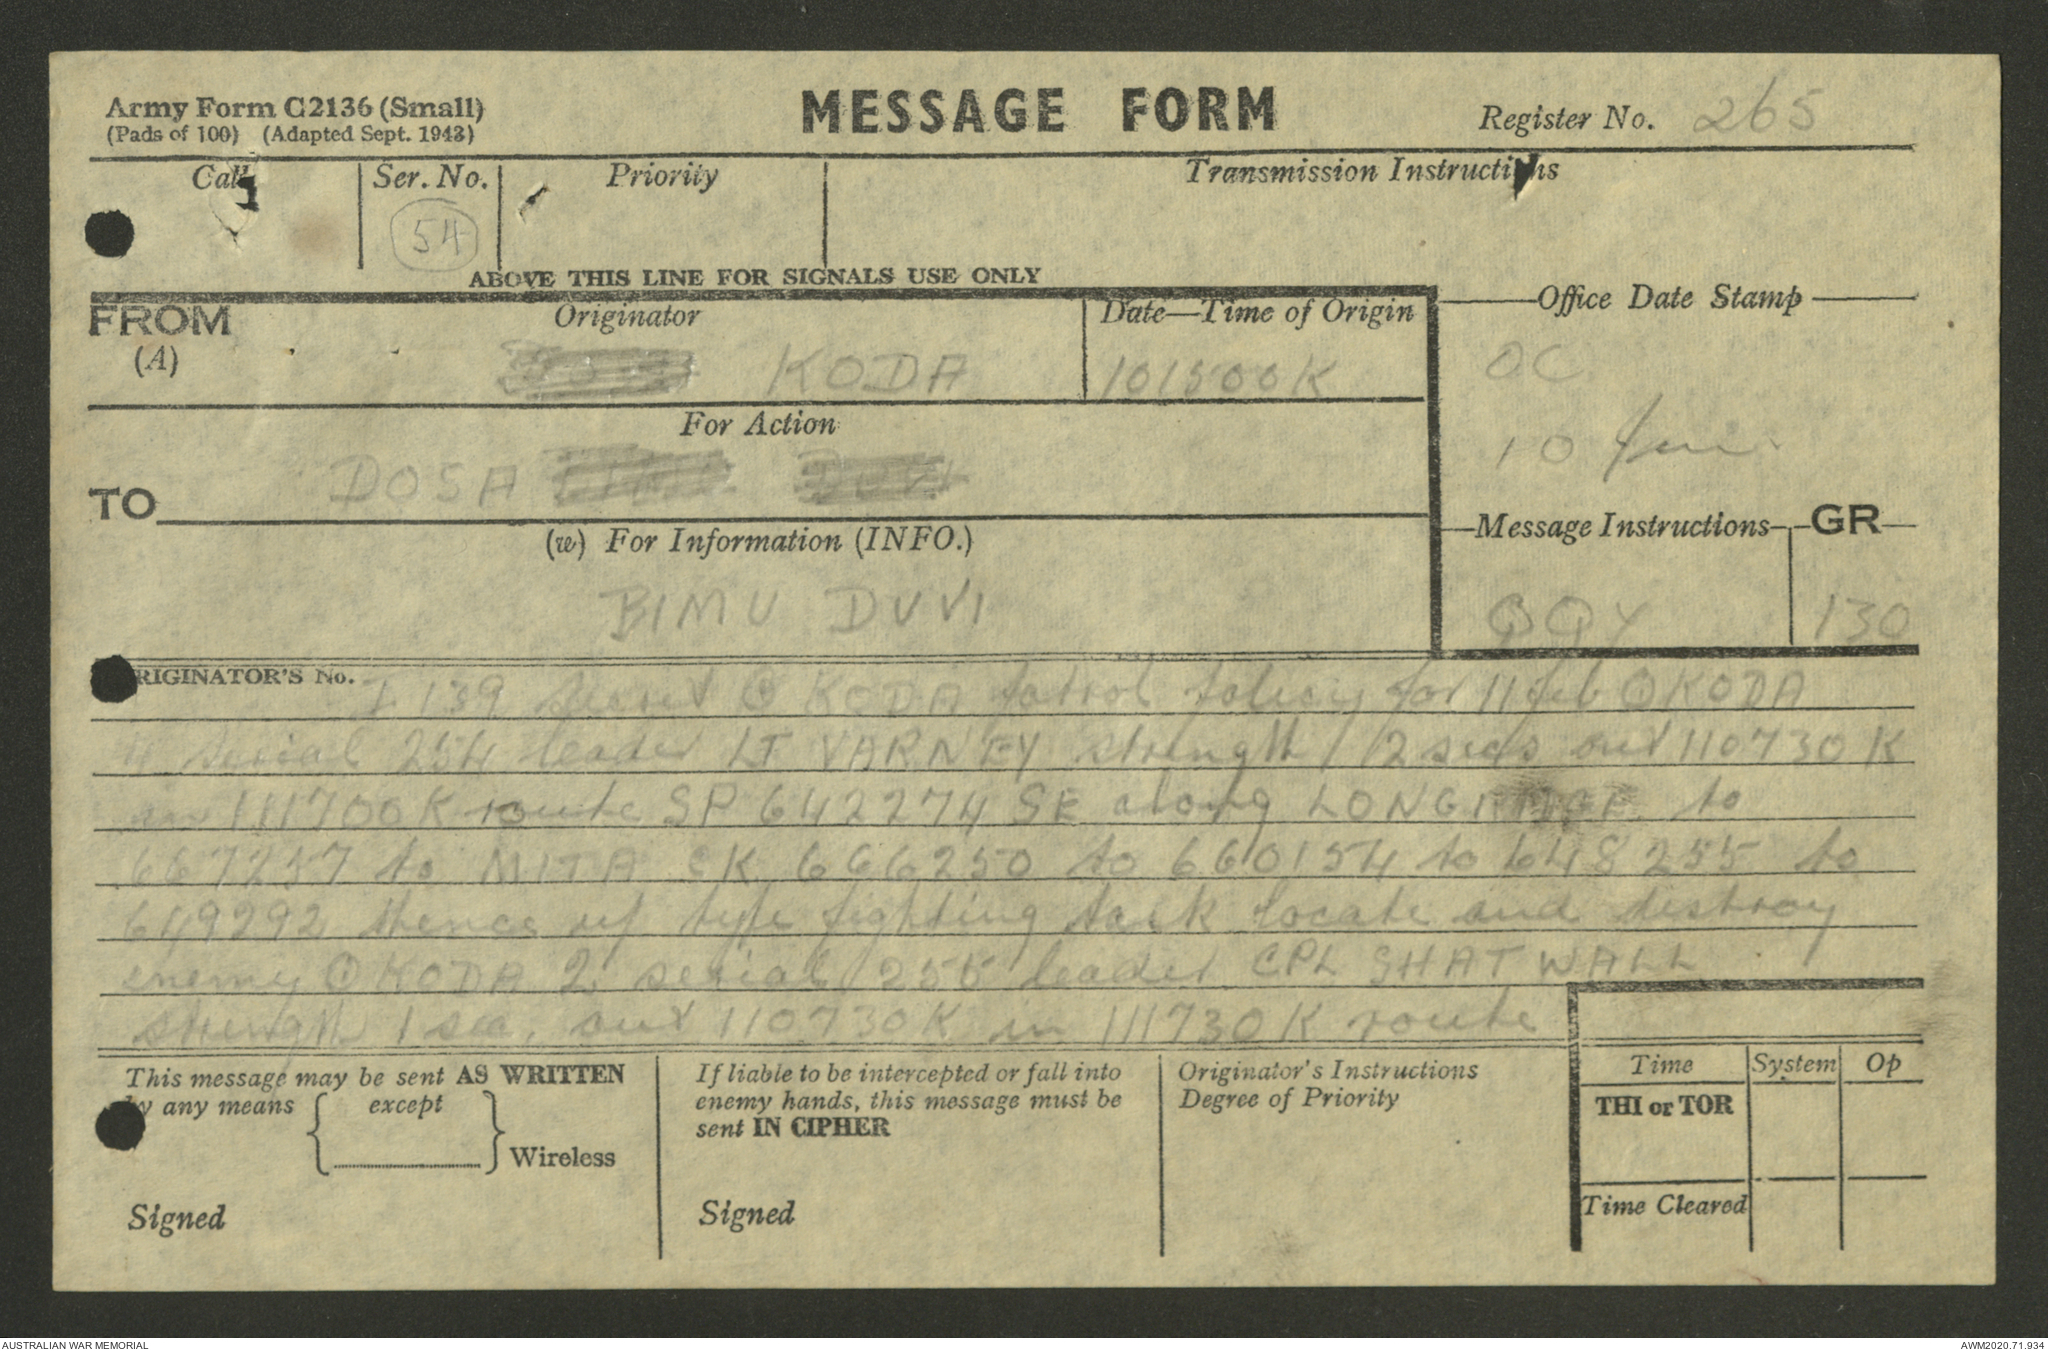 Army Form C2136 (Small)
(Pads of 100) (Adapted Sept. 1943)
MESSAGE FORM
Register No. 265
Call
Ser. No.
Priority
Transmission Instructions
54
ABOVE THIS LINE FOR SIGNALS USE ONLY
FROM
(A)
Originator
KODA
Date—Time of Origin
101500K
Office Date Stamp
OC
10
For Action
TO
DOSA
(w) For Information (INFO.)
BIMU DUVI
Message Instructions
GR
130
ORIGINATOR'S No.
I 139 secret ⊕ KODA patrol policy for 11 feb ⊕ KODA
serial 254 leader LT VARNEY strength 2 secs out 110730K
in 111700K route SP 642274 SE along LONG to
667257 to MITA CK 666250 to 660154 to 648255 to
649292 thence rtf type fighting task locate and destroy
enemy ⊕ KODA 2 serial 255 leader CPL SHATWALL
strength 1 sec. out 110730K in 111730K route
This message may be sent AS WRITTEN
by any means except
Wireless
Signed
If liable to be intercepted or fall into
enemy hands, this message must be
sent IN CIPHER
Signed
Originator's Instructions
Degree of Priority
Time
System
Op
THI or TOR
Time Cleared
AUSTRALIAN WAR MEMORIAL
AWM2020.71.934